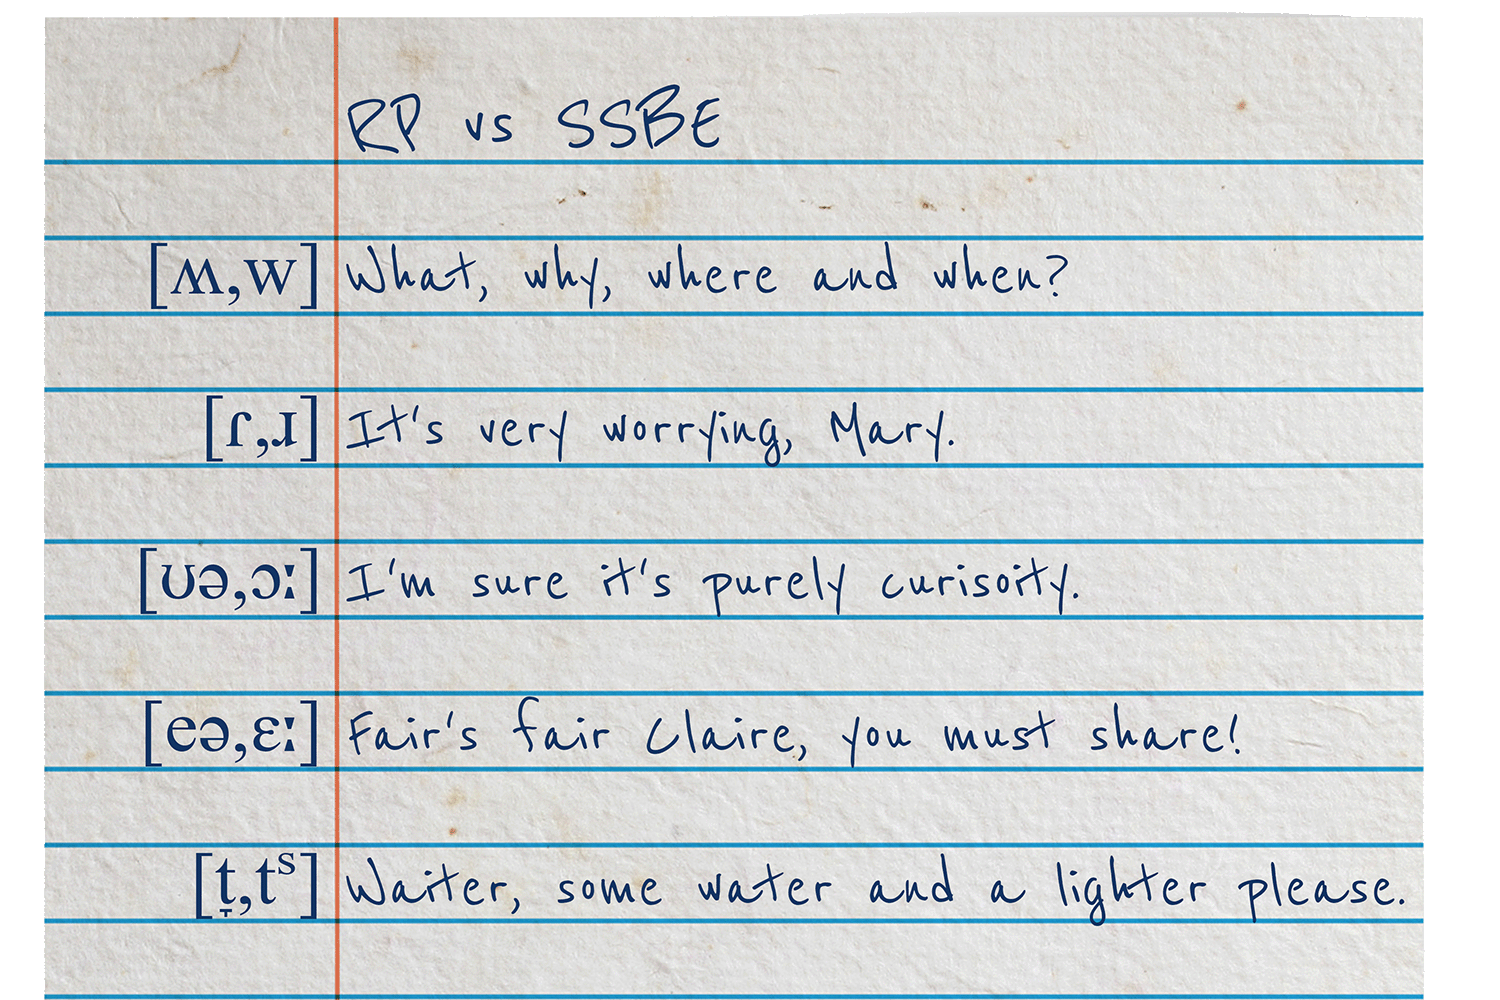 RP vs SSBE
[ʍ,w] What, why, where and when?
[ɾ,ɹ] It's very worrying, Mary.
[ʊə,ɔː] I'm sure it's purely curisoity.
[eə,ɛː] Fair's fair Claire, you must share!
[t̞,tˢ] Waiter, some water and a lighter please.